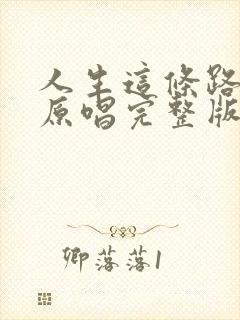 人生這條路
原唱完整版
卿落落1